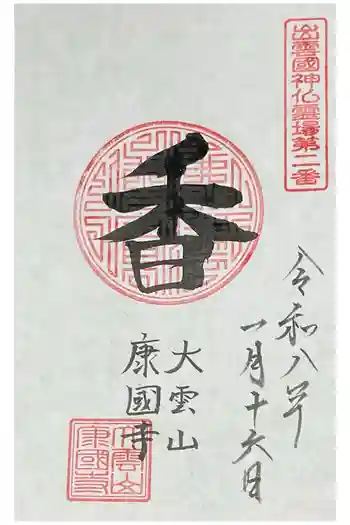 出雲國神仏霊場第二番
令和八年
一月十六日
香
大雲山
康國寺
大雲山
康國寺